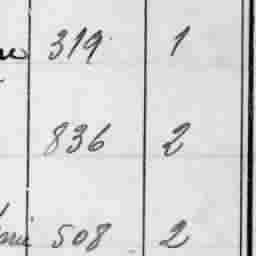 319 1
836 2
508 2